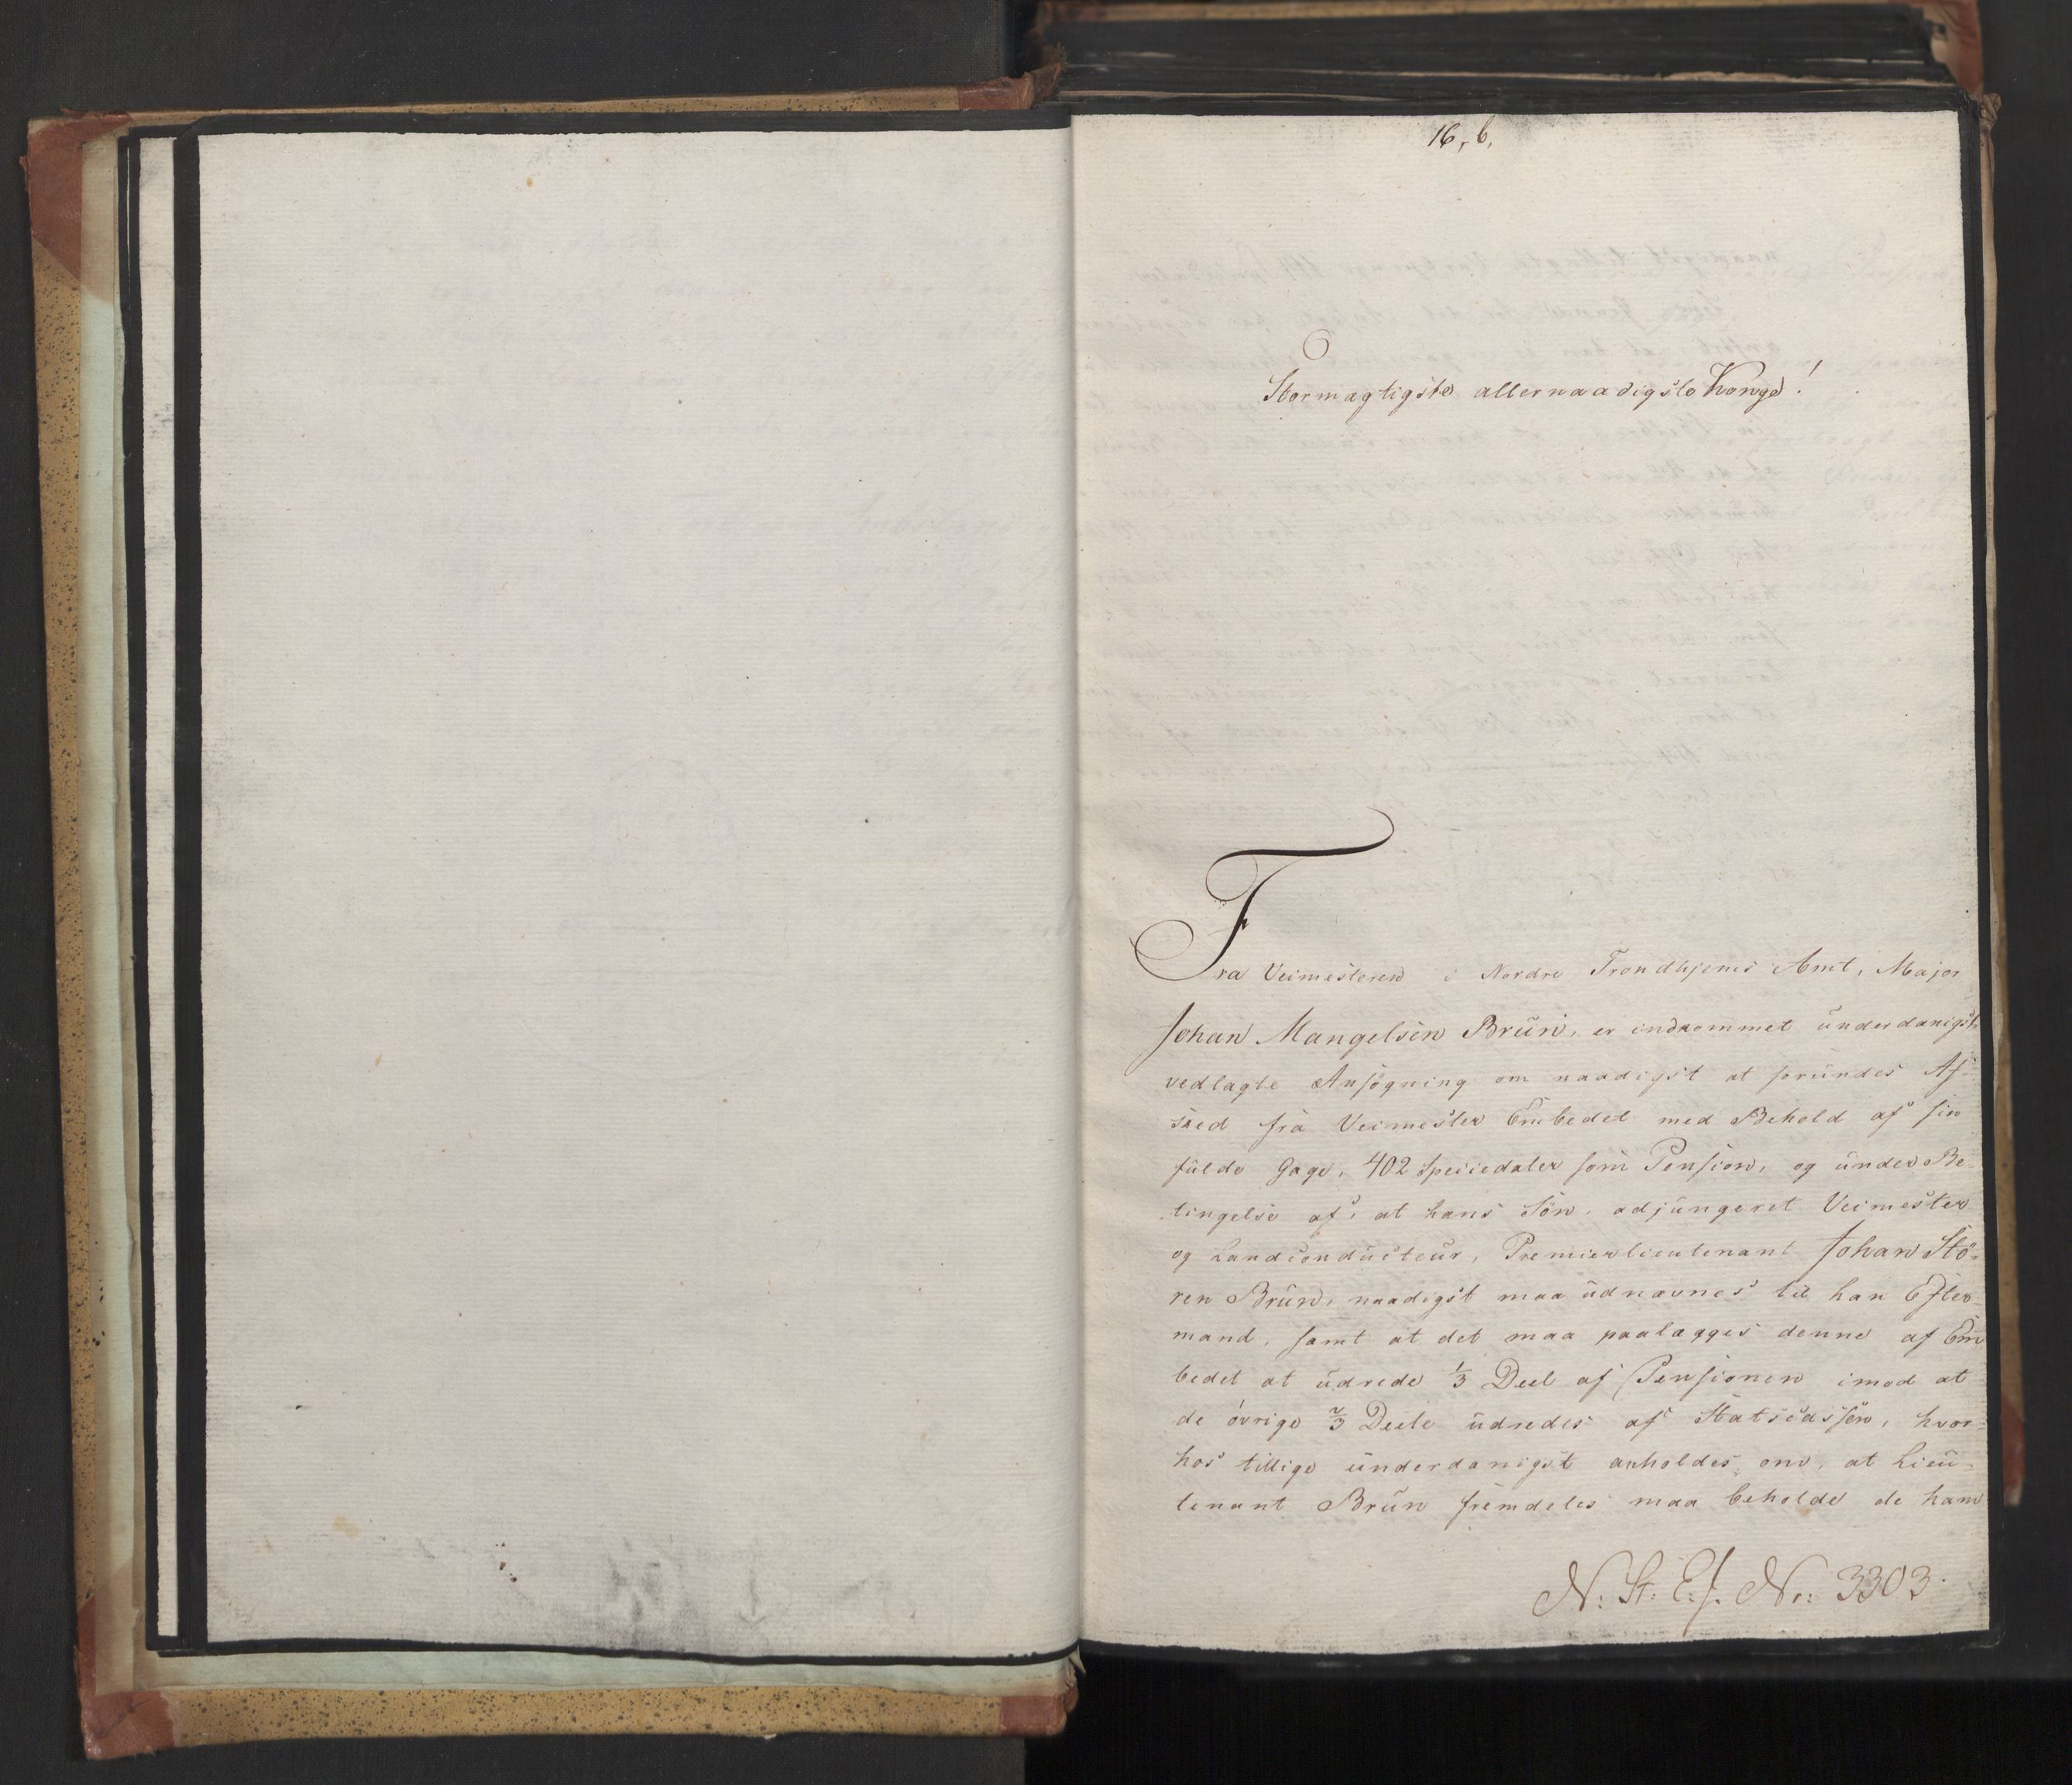 16, b,
Stormægtigste allernaadigste Konge!
Fra Veimesteren i Nordre Trondhjems Amt, Major
Johan Mangelsen Brün, er indkommet underdanigst
vedlagte Ansøgning om naadigst at forundes Af-
sked fra Veimester Embedet med Behold af sin
fulde Gage, 402 Speciedaler som Pension, og under Be-
tingelse af, at hans Søn, adjungeret Veimester
og Landconducteur, Premierlieutenant Johan Stö-
ren Brün, naadigst maa udnævnes til han Efter-
mand, samt at det maa paalægges denne af Em
bedet at udrede 1/3 Deel af Pensionen imod at
de øvrige 2/3 Dele udredes af Statscassen, hvor-
hos tillige underdanigst anholdes om, at Lieu-
tenant Brün fremdeles maa beholde de ham
N: St: E: J. No: 3303.